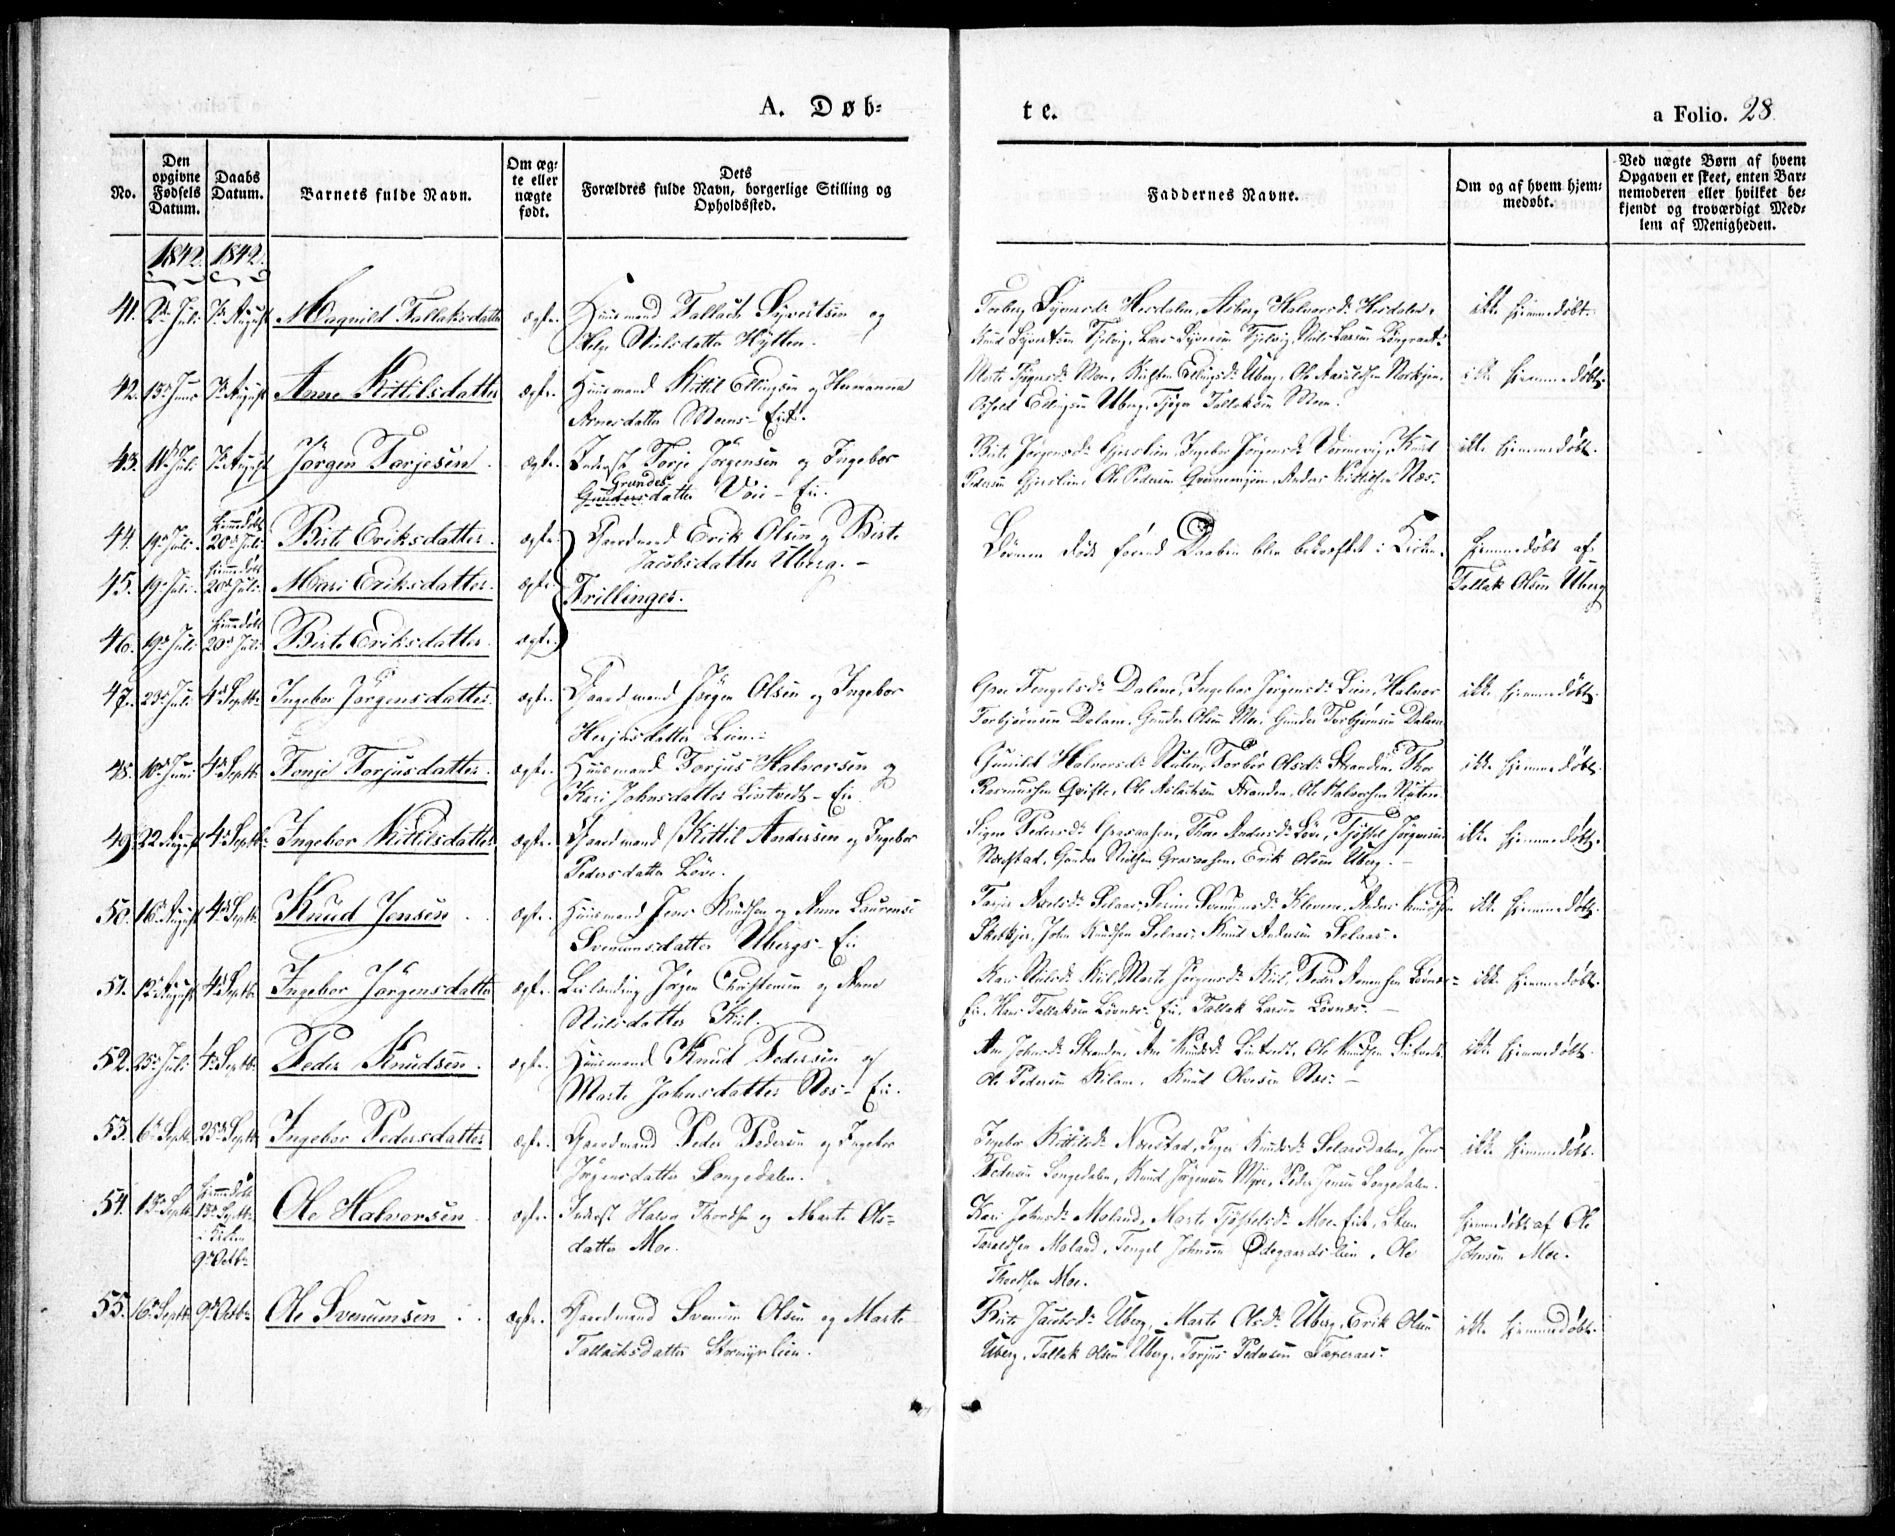 A. Døb-
te.
a Folio. 28
No.
Den opgivne Fødsels Datum.
Daabs Datum.
Barnets fulde Navn.
Om æg-te eller nægte født.
Dets
Forældres fulde Navn, borgerlige Stilling og
Opholdssted.
Faddernes Navne.
Om og af hvem hjem-
medøbt.
Ved nægte Børn af hvem
Opgaven er skeet, enten Bar-
nemoderen eller hvilket be-
kjendt og troværdigt Med-
lem af Menigheden.
1842. 1842.
41. 2d Juli 7d August Magnild Tallaksdatter ægte. Huusmand Tallach Syvertsen og
Nielsdatter Hytten.
Torberg Syversd: Hesdalen, Asberg Halvorsd: Hesdalen,
Knud Syvertsen Fjelvig, Lars Syversen Fjelvig, Niels Larsen
ikke hjemmedøbt.
42. 15d Juni 7d August Anne Kittilsdatter ægte. Huusmand Kittil Ellingsen og Hermanna
Arnesdatter Moens-Eie.
Marte Moen, Kirsten Ellingsd: Uberg, Ole
Ellingsen Uberg, Tallaksen Moen.
ikke hjemmedøbt.
43. 11d Juli 7d August Jörgen Tarjesen. ægte. Inderst Tarje Jörgensen og Ingebor
Grundes
Gundersdatter Voie-Eie.
Birte Jørgensd: Gjerslien, Ingebor Jørgensd: Knud
Pedersen Gjerslien, Ole Pedersen Anders Kittilsen Næs.
ikke hjemmedøbt.
44. 19d Juli. hjemmedøbt 20d Juli Birte Eriksdatter. ægte. Gaardmand Erik Olsen og Birte
Jacobsdatter Uberg.-
Børnene døde førend Daaben blev bekræftet i Kirken.
hjemmedøbt af
Tallak Olsen Uberg
45. 19d Juli hjemmedøbt 20d Juli Mari Eriksdatter. ægte. Trillinger.
46. 19d Juli hjemmedøbt 20d Juli Birte Eriksdatter. ægte.
47. 23d Juli 4d Septbr Ingebor Jörgensdatter. ægte. Gaardmand Jørgen Olsen og Ingebor
Herjusdatter Lien.
Groe Tengelsd: Dalene, Ingebor Jørgensd: Lien, Halvor
Torbjørnsen Dalene, Gunder Olsen Moe, Gunder Torbjørnsen Dalene
ikke hjemmedøbt.
48. 10d Juni 4d Septbr Tonje Torjusdatter. ægte. Huusmand Torjus Halvorsen og
Kari Johnsdatter Lintvedt-Eie.
Gunild Halvorsd: Nuten, Torbør Olsd: Stranden, Thor
Rasmussen Qvifte, Ole Aslaksen Stranden, Ole Halvorsen Nuten
ikke hjemmedøbt.
49. 22 August 4d Septbr Ingebor Kittilsdatter ægte. Gaardmand Kittil Andersen og Ingebor
Pedersdatter Løve.
Signe Pedersd: Thore Andersd: Løve, Tjøstel Jørgensen
Nærestad, Gunder Nielsen Erik Olsen Uberg.
ikke hjemmedøbt.
50. 16d August 4d Septbr Knud Jensen ægte. Huusmand Jens Knudsen og Anne Laurense
Svenumsdatter Ubergs-Eie
Selaas, Serine Svenumsd: Klevene, Anders Knudsen
John Knudsen Selaas, Knud Andersen Selaas.
ikke hjemmedøbt.
51. 12d August 4d Septbr Ingebor Jørgensdatter ægte. Leilænding Jørgen Christensen og Anne
Nielsdatter Kiil.
Kari Nielsd: Kiil, Marte Jørgensd: Kiil, Peder Løvnæs-
Eie, Hans Tallaksen Løvnæs-Eie, Tallak Larsen Løvnæs.
ikke hjemmedøbt.
52. 25d Juli 4d Septbr Peder Knudsen. ægte. Huusmand Knud Pedersen og
Marte Johnsdatter Næs-Eie.
Ane Johnsd: Stranden, Ane Knudsd: Lintvedt, Ole Knudsen Lintvedt,
Ole Pedersen Kilane, Knud Olvesen Næs.
ikke hjemmedøbt.
53. 6d Septbr 25d Septbr Ingebor Pedersdatter ægte. Gaardmand Peder Pedersen og Ingebor
Jörgensdatter Songedalen.
Ingebor Kittilsd: Nærestad, Inger Knudsd: Selaasdalen, Jens
Pedersen Songedalen, Knud Jørgensen Myre, Peder Jensen Songedalen.
ikke hjemmedøbt.
54. 13d Septbr hjemmedøbt 13d Septbr i Kirken 9d Octbr Ole Halvorsen ægte. Inderst Halvor Thordsen og Marte Ols-
datter Moe.
Kari Johnsd: Moland, Marte Tjøstelsd: Moe-Eie, Steen
Taraldsen Moland, Tengel Johnsen Ødegaardslien, Ole
Thordsen Moe.
hjemmedøbt af Ole
Johnsen Moe.
55. 16d Septbr 9d Octbr Ole Svenumsen ægte. Gaardmand Svenum Olsen og Marte
Tallachsdatter Stormyrlien.
Birte Jacobsd: Uberg, Marte Olsd: Uberg, Erik Olsen
Uberg, Tallak Olsen Uberg, Torjus Pedersen Taxeraas.
ikke hjemmedøbt.